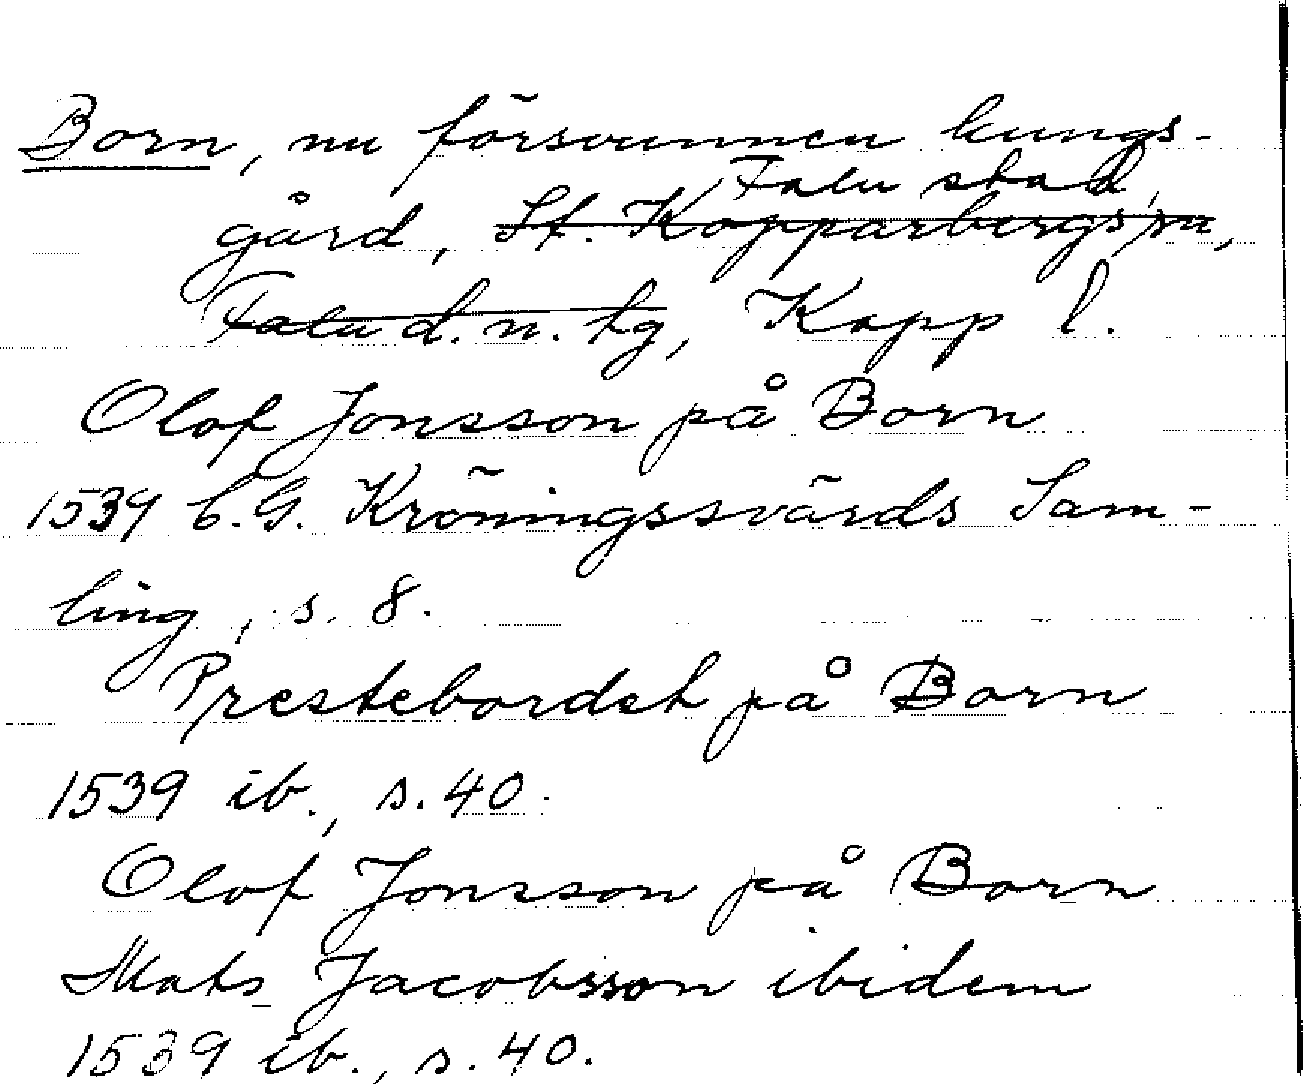 Born, nu försvunnen kungs-
Falu stad,
gård, St. Kopparbergs sn,
Falu d. n. hg, Kopp l.
Olof Jonsson på Born
1539 C.G. Kröningssvärds Sam-
ling, s. 8.
Prestebordet på Born
1539 ib., s. 40.
Olof Jonsson på Born
Mats Jacobsson ibidem
1539 ib., s. 40.